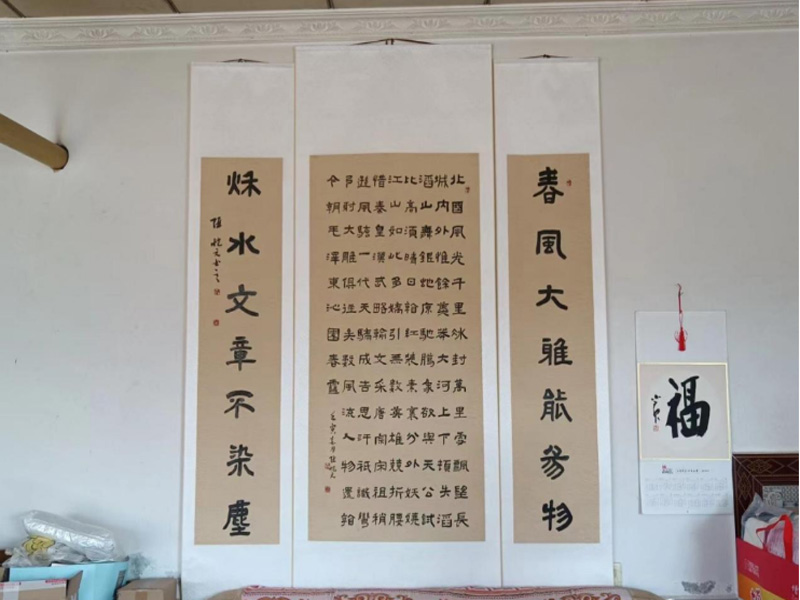 春風大雅能容物
北國風光千里冰封萬里雪飄望長
城內外惟餘莽莽大河上下頓失滔
滔山舞銀蛇原馳臘象欲與天公試
比高須晴日看紅裝素裹分外妖嬈
江山如此多嬌引無數英雄競折腰
惜秦皇漢武略輸文采唐宗宋祖稍
遜風騷一代天驕成吉思汗祗識彎
弓射大雕俱往矣數風流人物還看
今朝毛澤東沁園春雪
壬寅
秋水文章不染塵
福